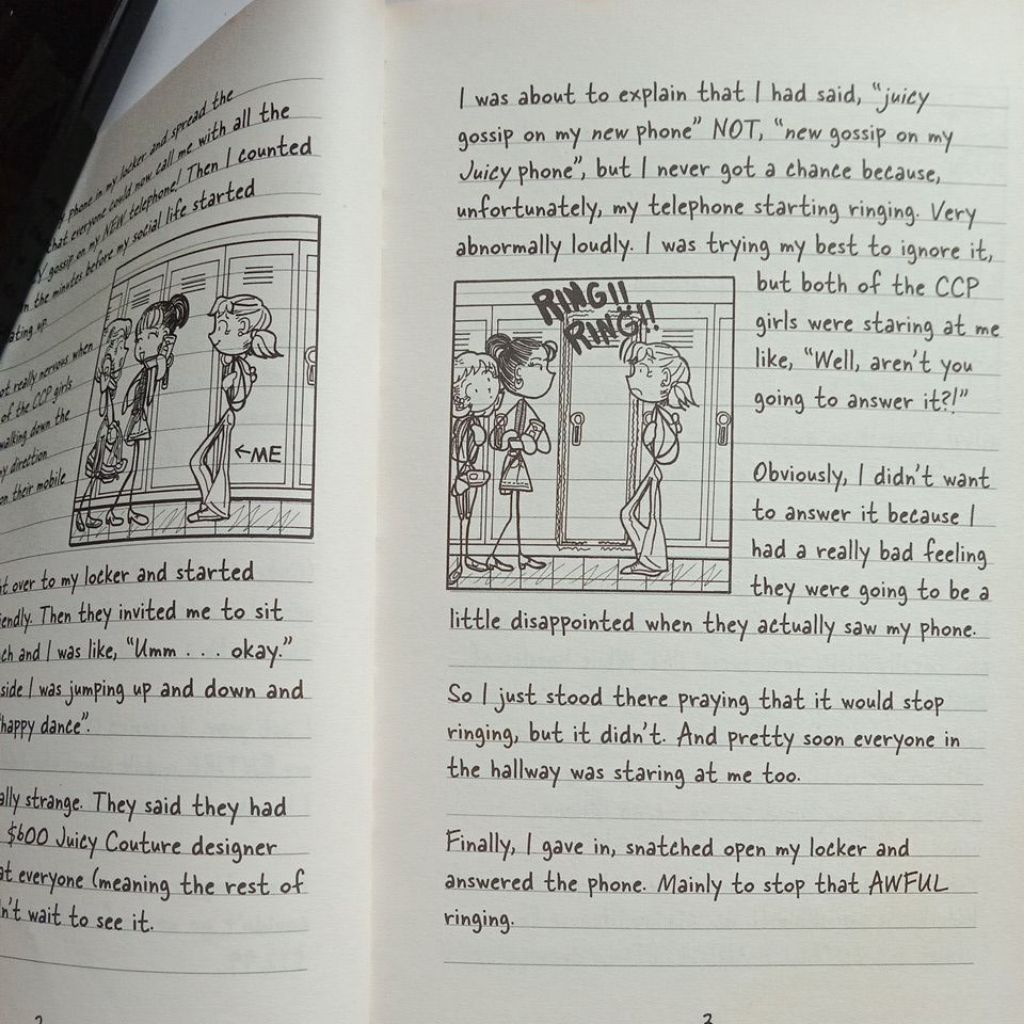 phone in my locker and spread the
that everyone could now call me with all the
gossip on my NEW telephone! Then I counted
the minutes before my social life started
ating up.
really nervous when
of the CCP girls
walking down the
direction
on their mobile
←ME
t over to my locker and started
endly. Then they invited me to sit
ch and I was like, “Umm . . . okay.”
side I was jumping up and down and
“happy dance”.
ally strange. They said they had
$600 Juicy Couture designer
at everyone (meaning the rest of
n't wait to see it.
2
I was about to explain that I had said, “juicy
gossip on my new phone” NOT, “new gossip on my
Juicy phone”, but I never got a chance because,
unfortunately, my telephone starting ringing. Very
abnormally loudly. I was trying my best to ignore it,
but both of the CCP
girls were staring at me
like, “Well, aren't you
going to answer it?!”
RING!!
RING!!
Obviously, I didn't want
to answer it because I
had a really bad feeling
they were going to be a
little disappointed when they actually saw my phone.
So I just stood there praying that it would stop
ringing, but it didn't. And pretty soon everyone in
the hallway was staring at me too.
Finally, I gave in, snatched open my locker and
answered the phone. Mainly to stop that AWFUL
ringing.
3